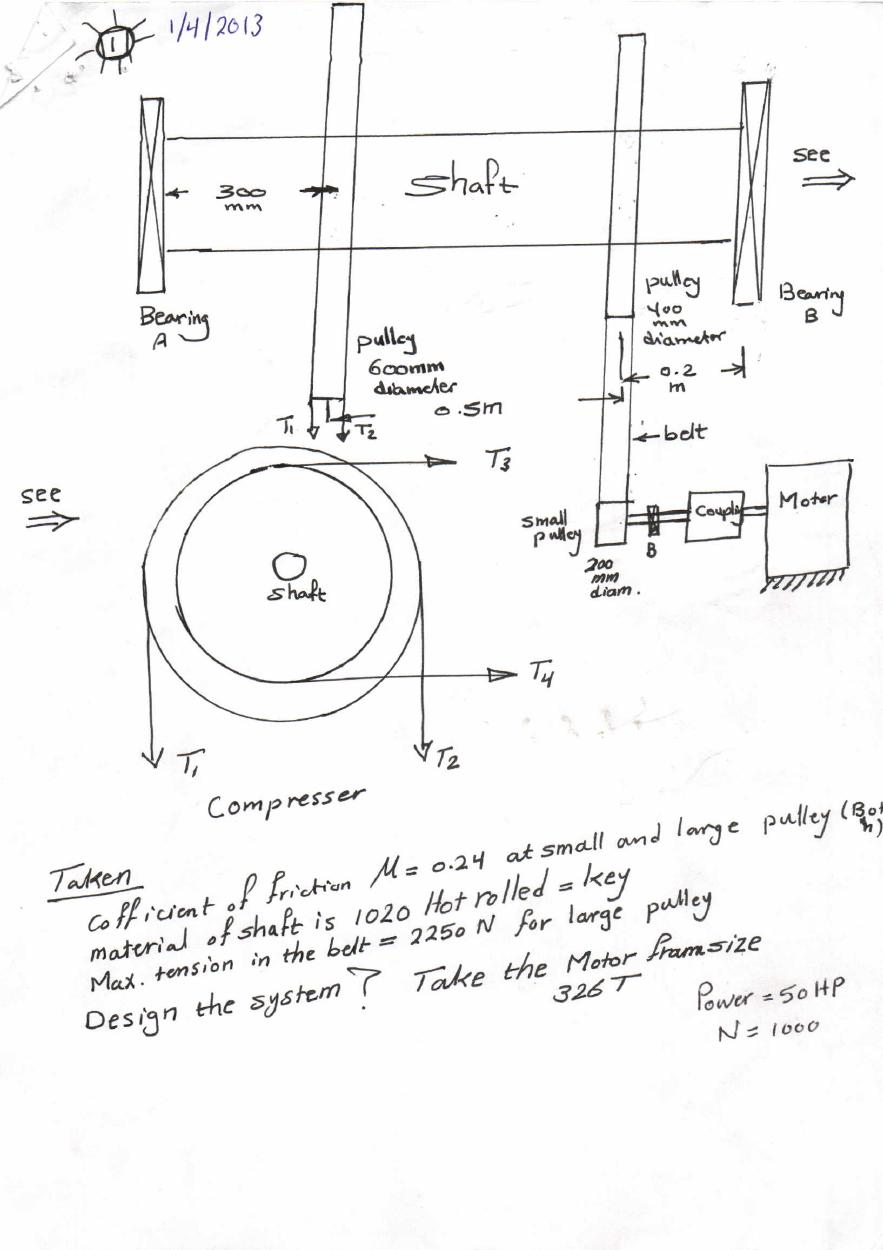 1
1/4/2013
see
300
mm
shaft
Bearing
A
pulley
400
mm
diameter
Bearing
B
pulley
600mm
diameter
0.2
m
0.5m
T1
T2
belt
T3
see
small
pulley
200
mm
diam.
B
Couplin
Motor
shaft
T4
T1
T2
Compresser
Taken
Cofficient of friction M = 0.24 at small and large pulley (Both)
material of shaft is 1020 Hot rolled = key
Max. tension in the belt = 2250 N for large pulley
Design the system? Take the Motor framsize
326T
Power = 50 HP
N = 1000